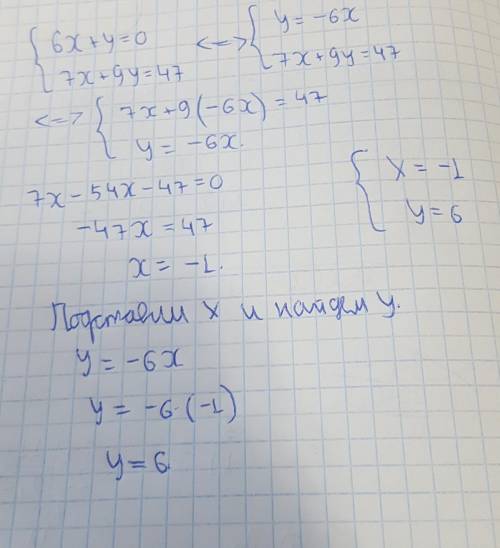 { 6x+y=0 <=> { y= -6x
{ 7x+9y=47 { 7x+9y=47
<=> { 7x+9(-6x) = 47
{ y= -6x.
7x-54x-47=0
-47x=47
x= -1.
{ x= -1
{ y=6
Подставим x и найдем y.
y= -6x
y= -6·(-1)
y=6